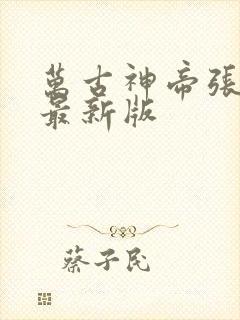 萬古神帝張
最新版
蔡子民